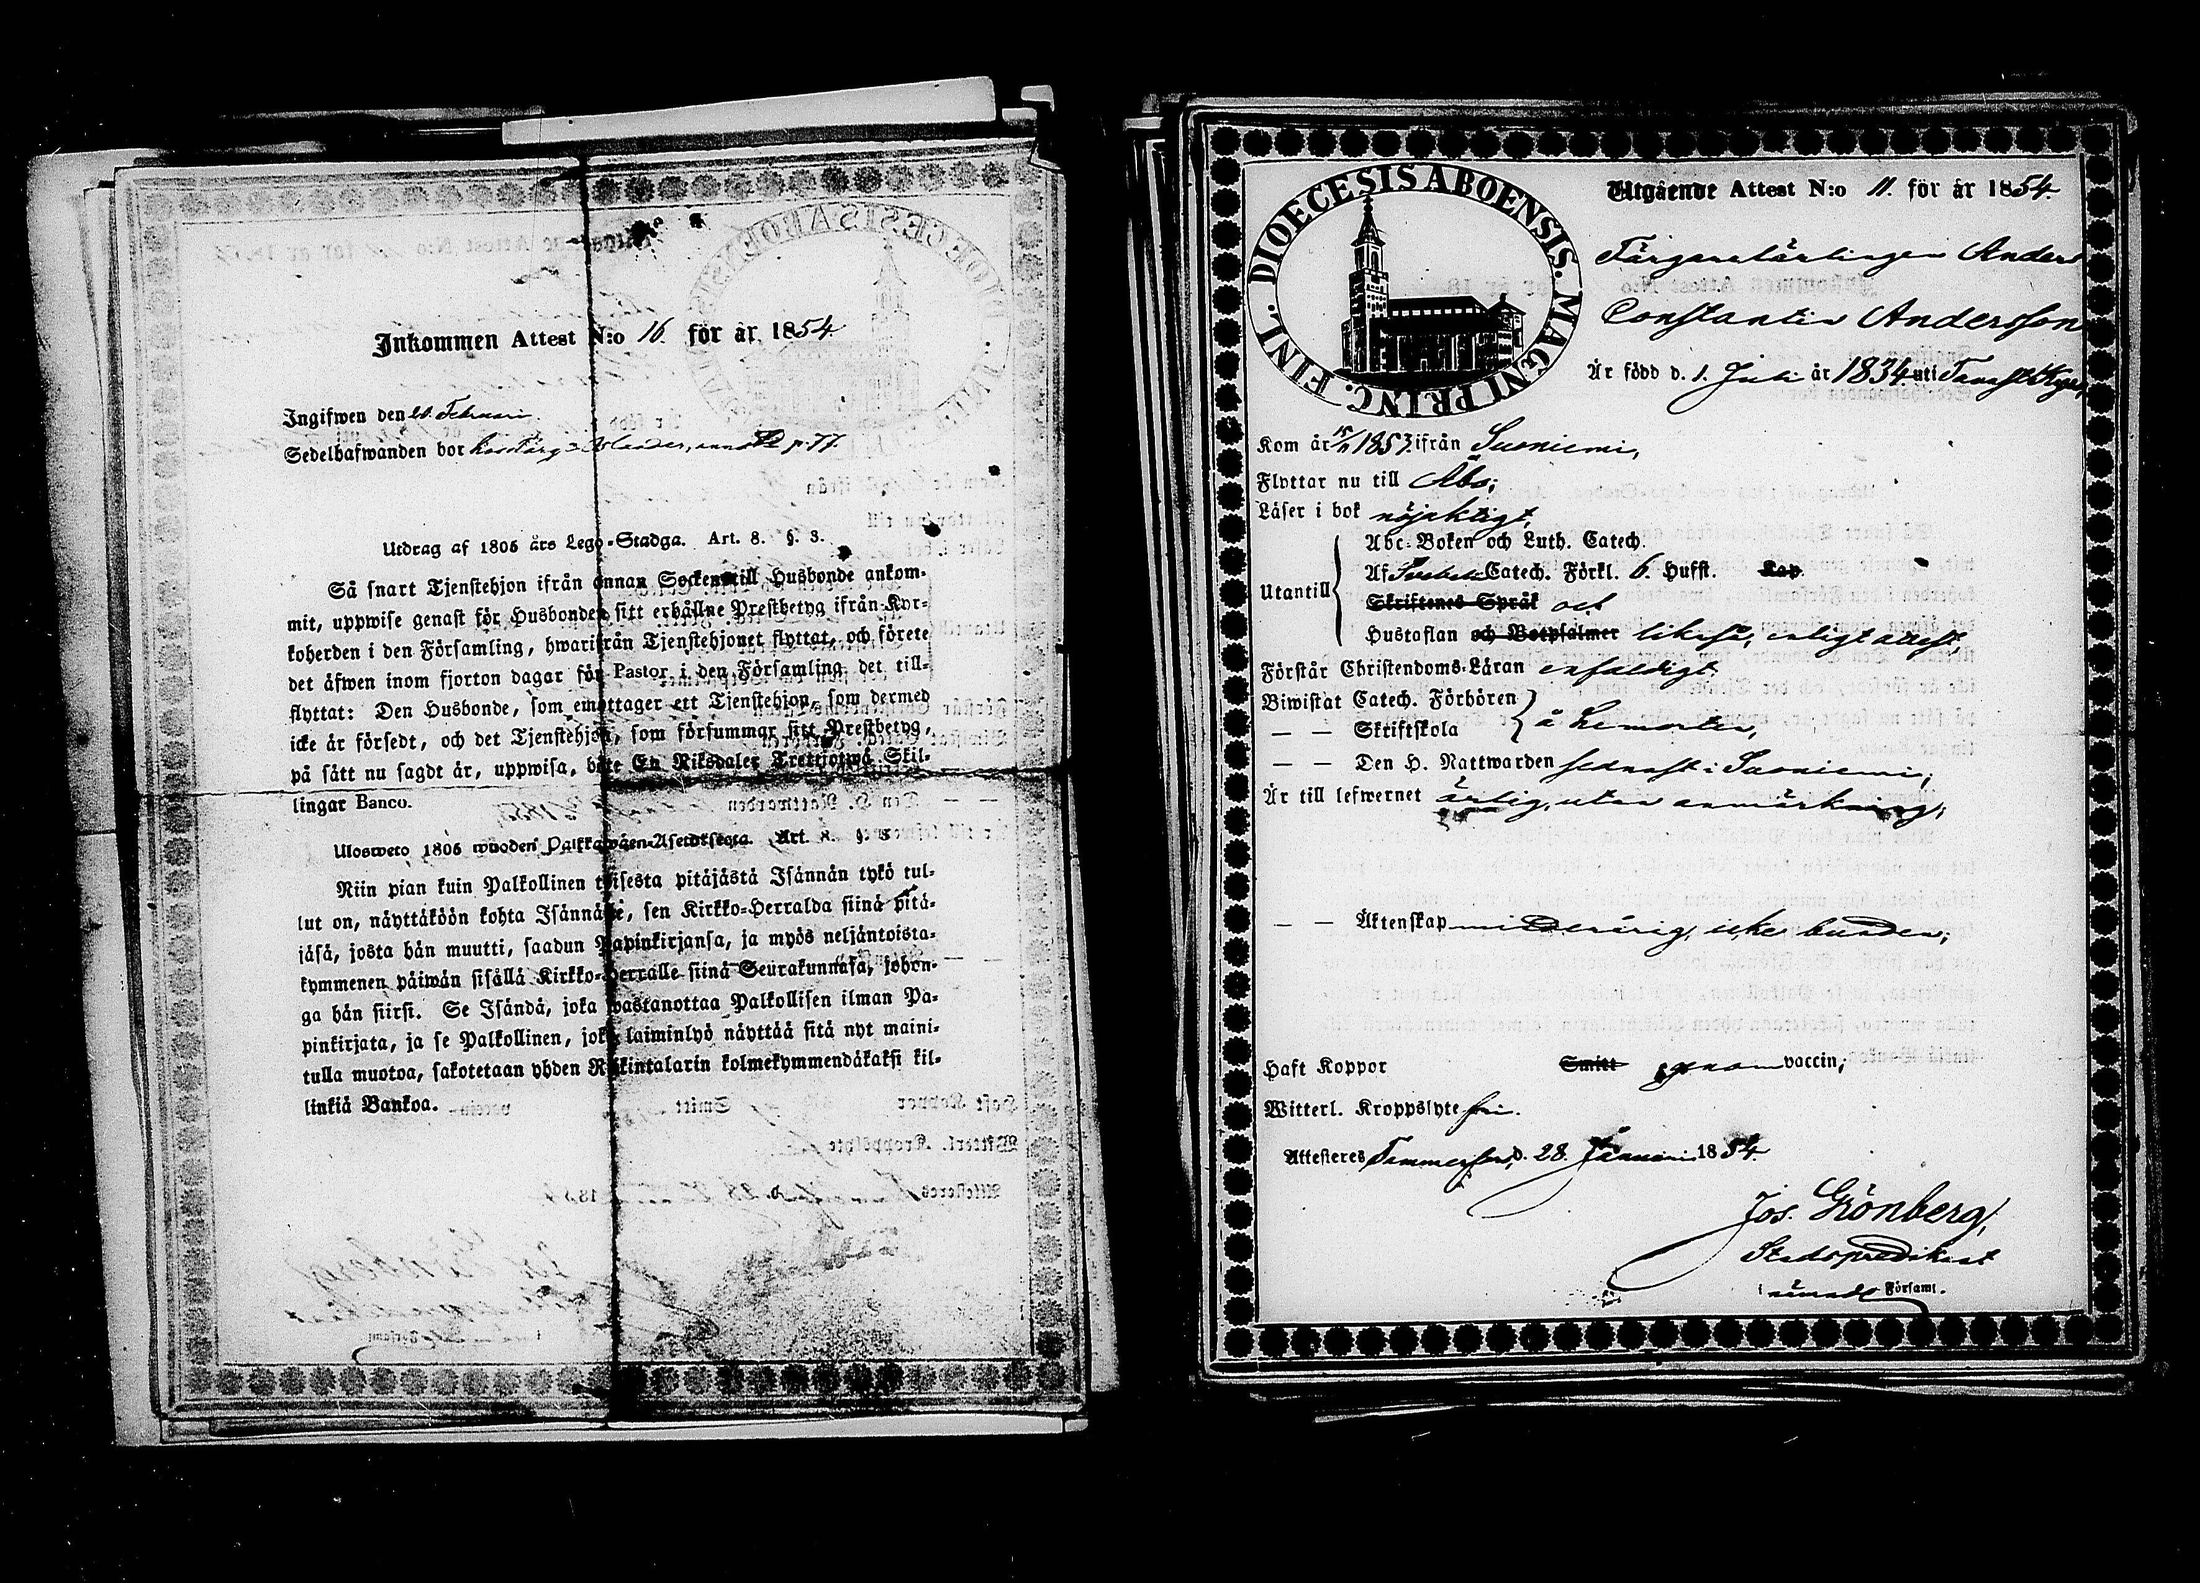 Inkommen Attest N:o 16. för år 1854.
Ingifwen den 20. Februari
Sedelhafwanden bor hos Färg. p. 77.
Utdrag af 1805 års Lego-Stadga. Art. 8. §. 3.
Så snart Tjenstehjon ifrån annan Socken till Husbonde ankom-
mit, uppwise genast för Husbonden sitt erhållne Prestbetyg ifrån Kyr-
koherden i den Församling, hwarifrån Tjenstehjonet flyttat, och förete
det äfwen inom fjorton dagar för Pastor i den Församling det till-
flyttat: Den Husbonde, som emottager ett Tjenstehjon, som dermed
icke är försedt, och det Tjenstehjon, som försummar sitt Prestbetyg,
på sätt nu sagdt är, uppwisa, böte En Riksdaler Trettiotwå Skil-
lingar Banco.
Ulosweto 1805 wuoden Palkkawäen-Asetuksesta. Art. 8. § 3
Niin pian kuin Palkollinen toisesta pitäjästä Isännän tykö tul-
lut on, näyttäköön kohta Isännälle, sen Kirkko-Herralda siinä pitä-
jäsä, josta hän muutti, saadun Papinkirjansa, ja myös neljäntoista-
kymmenen päiwän sisällä Kirkko-Herralle siinä Seurakunnasa, johon-
ga hän siirsi. Se Isändä, joka wastanottaa Palkollisen ilman Pa-
pinkirjata, ja se Palkollinen, joka laiminlyö näyttää sitä nyt maini-
tulla muotoa, sakotetaan yhden Riikintalarin kolmekymmendäkaksi kil-
linkiä Bankoa.
DIOECESIS ABOENSIS. MAGNI PRINC. FINL.
Utgående Attest N:o 11. för år 1854.
Färgarelärlingen Anders
Constantin Andersson
Är född d. 1. Juli år 1834 uti Tavastkyro,
Kom år 15/11 1853. ifrån Suoniemi,
Flyttar nu till Åbo;
Läser i bok nöjaktigt,
Utantill
Abc-Boken och Luth. Catech.
Af Svebelii Catech. Förkl. 6. Hufst. Kap.
Skriftenes Språk och
Hustaflan och Botpsalmer likaså, enligt attest,
Förstår Christendoms-Läran enfaldigt.
Biwistat Catech. Förhören
— — Skriftskola
å Lemorten,
— — Den H. Nattwarden sednast i Suoniemi;
Är till lefwernet ärlig, utan anmärkning;
— — Äktenskap minderårig, icke bunden;
Haft Koppor Smitt genom vaccin;
Witterl. Kroppslyte fri.
Attesteres Tammerfors, d. 28. Januari 1854.
Jos. Grönberg,
Stadspredikant
i nämnde Församl.